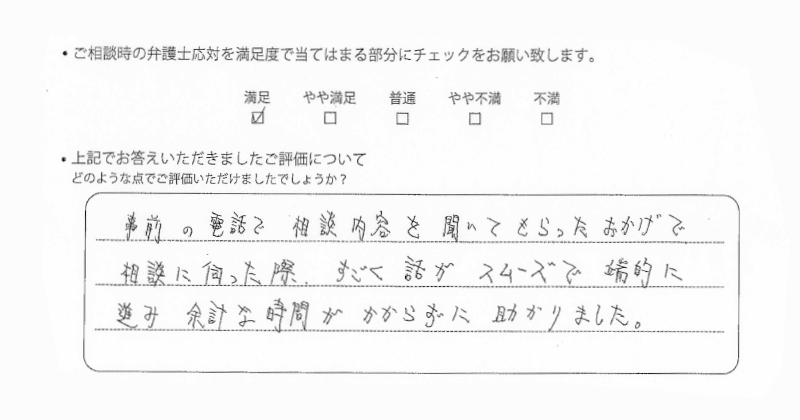 ・ご相談時の弁護士応対を満足度で当てはまる部分にチェックをお願い致します。
満足 やや満足 普通 やや不満 不満
☑ □ □ □ □
・上記でお答えいただきましたご評価について
どのような点でご評価いただけましたでしょうか？
事前の電話で 相談内容を聞いてもらったおかげで
相談に伺った際、すごく話がスムーズで端的に
進み 余計な時間がかからずに助かりました。